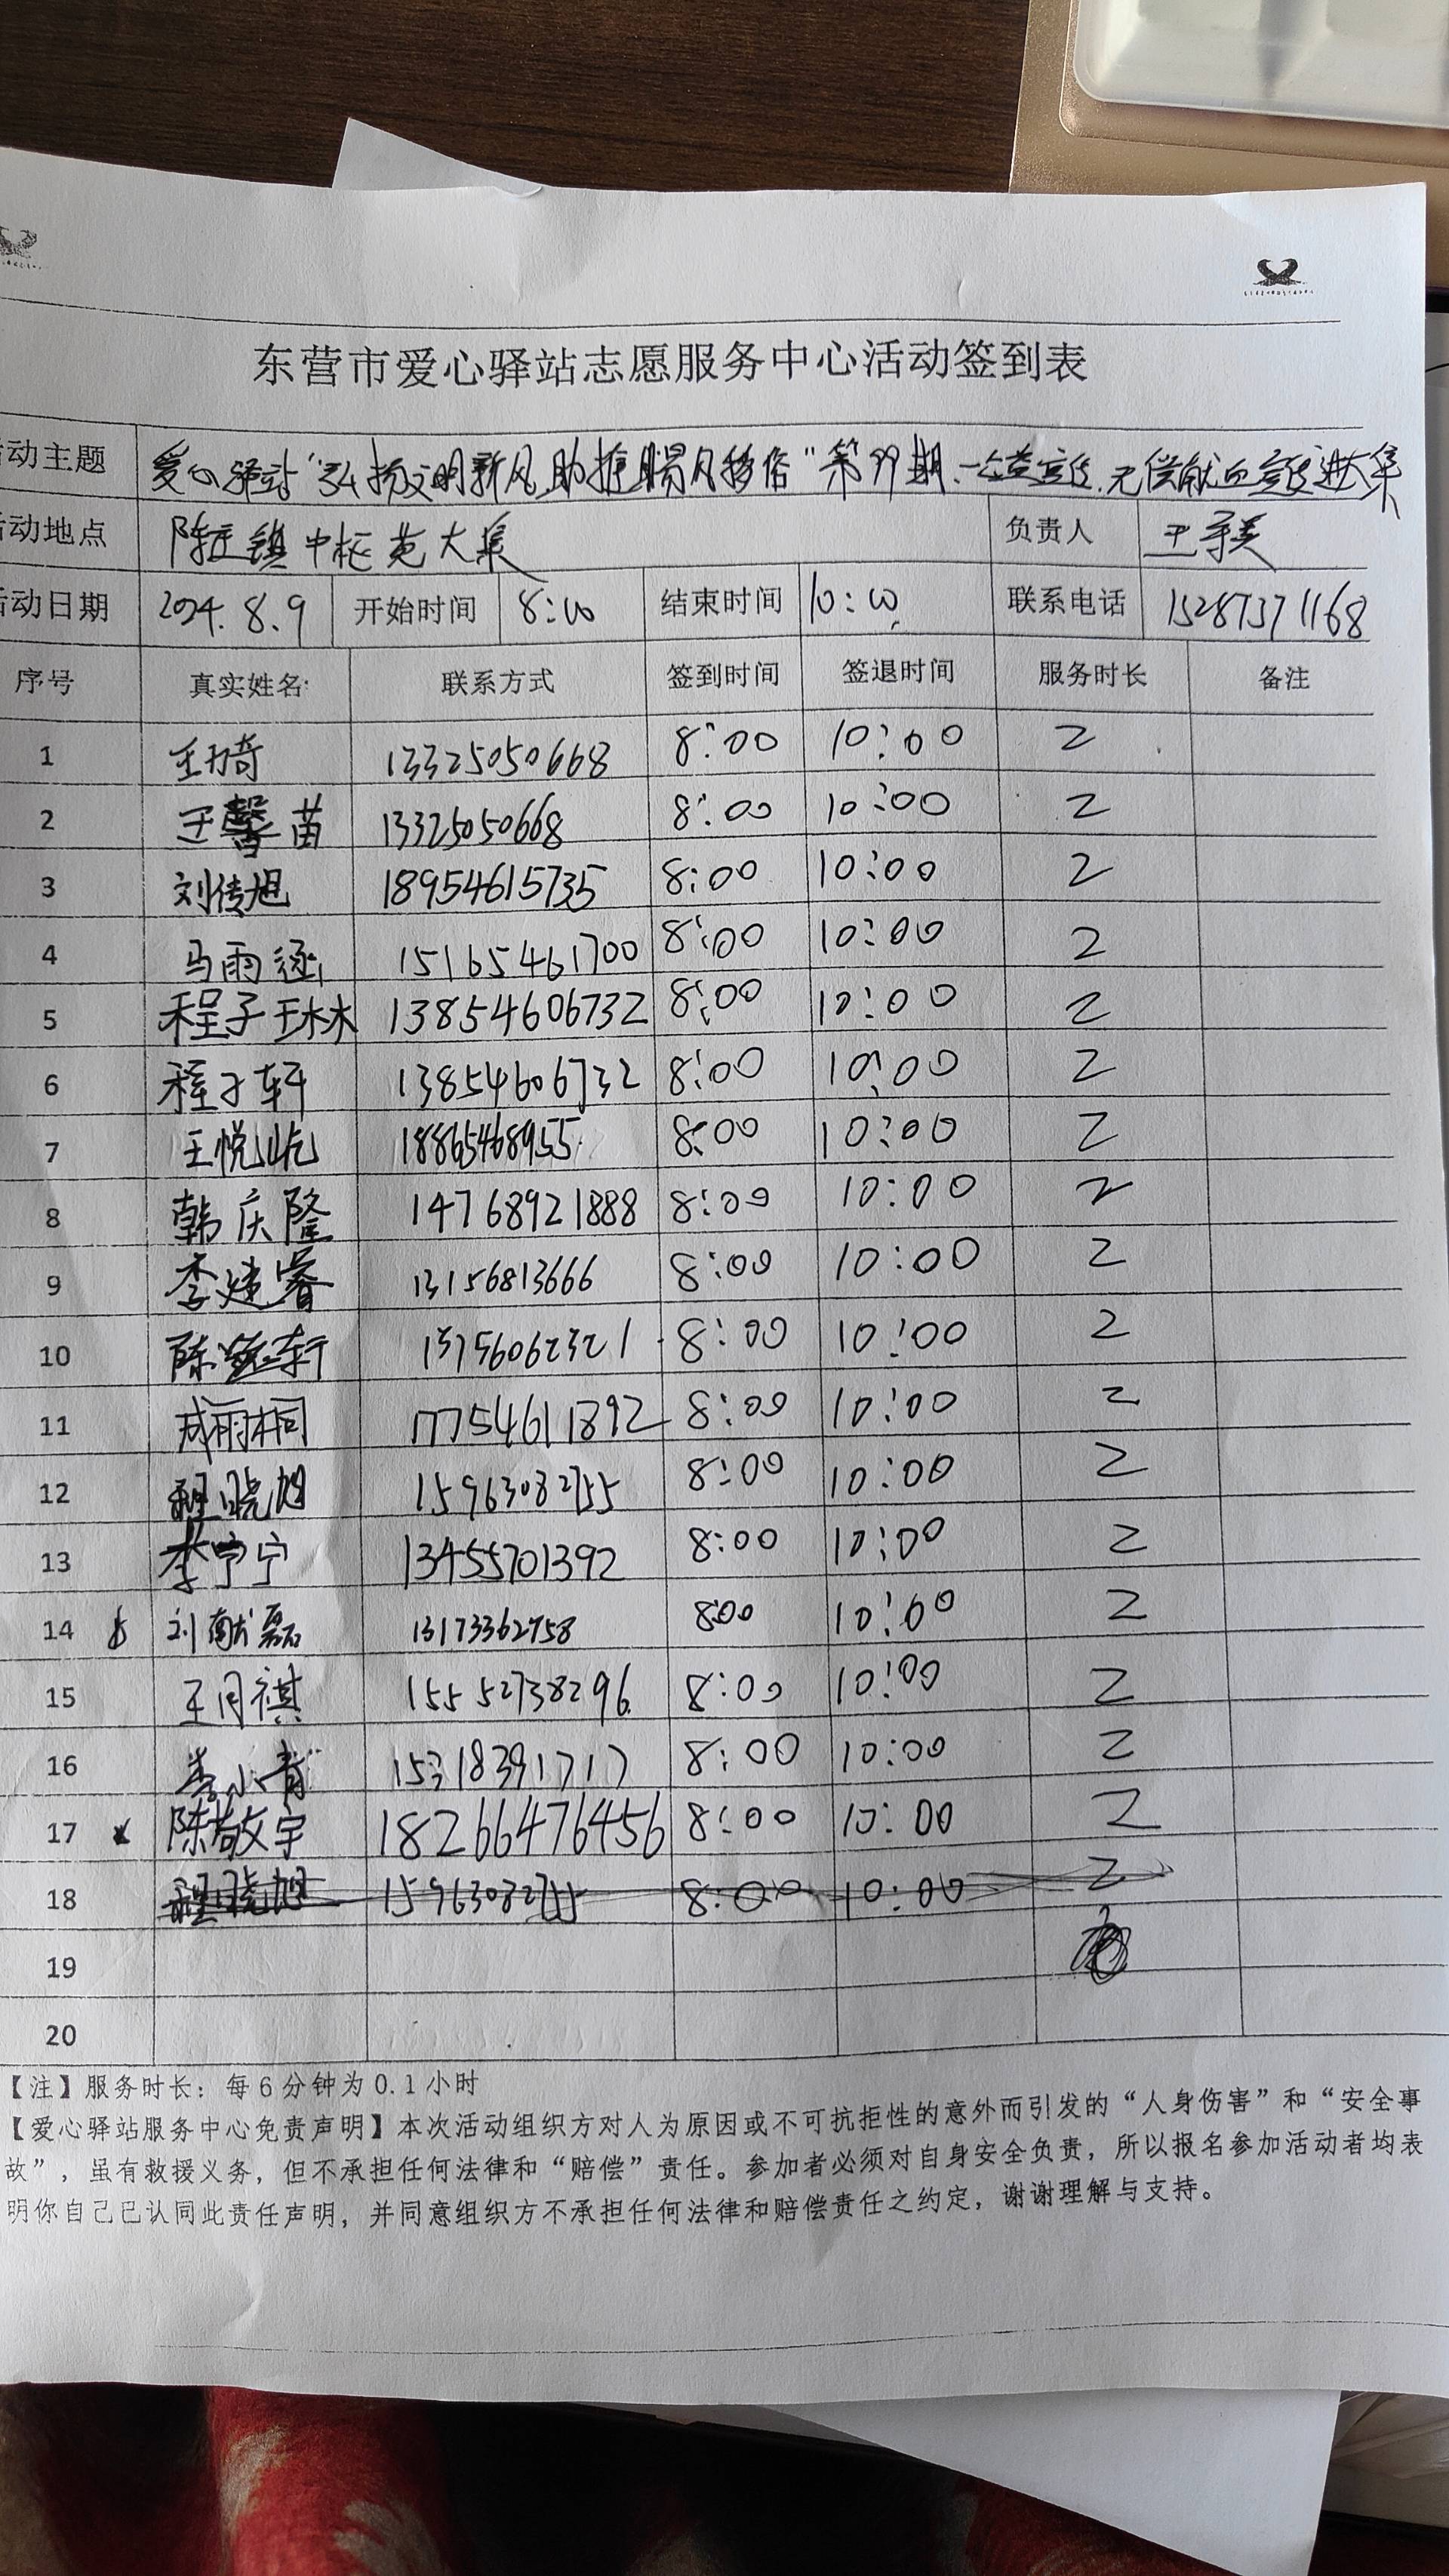 东营市爱心驿站志愿服务中心活动签到表
活动主题 爱心驿站"弘扬文明新风,助推移风易俗"第99期 宣传、无偿献血宣传进大集
活动地点 陈庄镇中 大集 负责人 王
活动日期 2024.8.9 开始时间 8:00 结束时间 10:00 联系电话 15287371168
序号 真实姓名 联系方式 签到时间 签退时间 服务时长 备注
1 王 琦 13325050668 8:00 10:00 2
2 王馨苗 13325050668 8:00 10:00 2
3 刘传旭 18954615735 8:00 10:00 2
4 马雨涵 15165461700 8:00 10:00 2
5 程子琳 13854606732 8:00 10:00 2
6 程子轩 13854606732 8:00 10:00 2
7 王悦屹 18865468955 8:00 10:00 2
8 韩庆隆 14768921888 8:00 10:00 2
9 李建睿 13156813666 8:00 10:00 2
10 陈 轩 8:00 10:00 2
11 成雨桐 17754611892 8:00 10:00 2
12 程晓旭 15963082755 8:00 10:00 2
13 李宁宁 13455701392 8:00 10:00 2
14 刘献磊 8:00 10:00 2
15 王月祺 15552738296 8:00 10:00 2
16 李小青 15318391717 8:00 10:00 2
17 陈敬宇 18266476456 8:00 10:00 2
18 程晓旭 15963082755 8:00 10:00 2
19
20
【注】服务时长:每6分钟为0.1小时
【爱心驿站服务中心免责声明】本次活动组织方对人为原因或不可抗拒性的意外而引发的“人身伤害”和“安全事
故”,虽有救援义务,但不承担任何法律和“赔偿”责任。参加者必须对自身安全负责,所以报名参加活动者均表
明你自己已认同此责任声明,并同意组织方不承担任何法律和赔偿责任之约定,谢谢理解与支持。